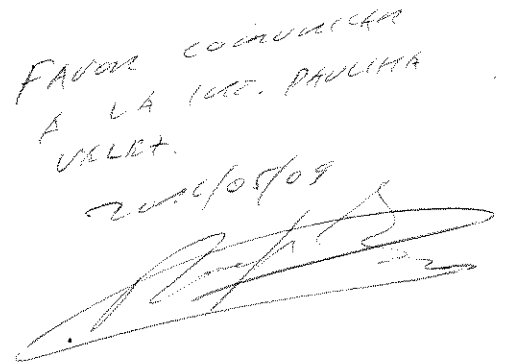 FAVOR COMUNICAR
A LA ING. PAULINA
VELEZ.